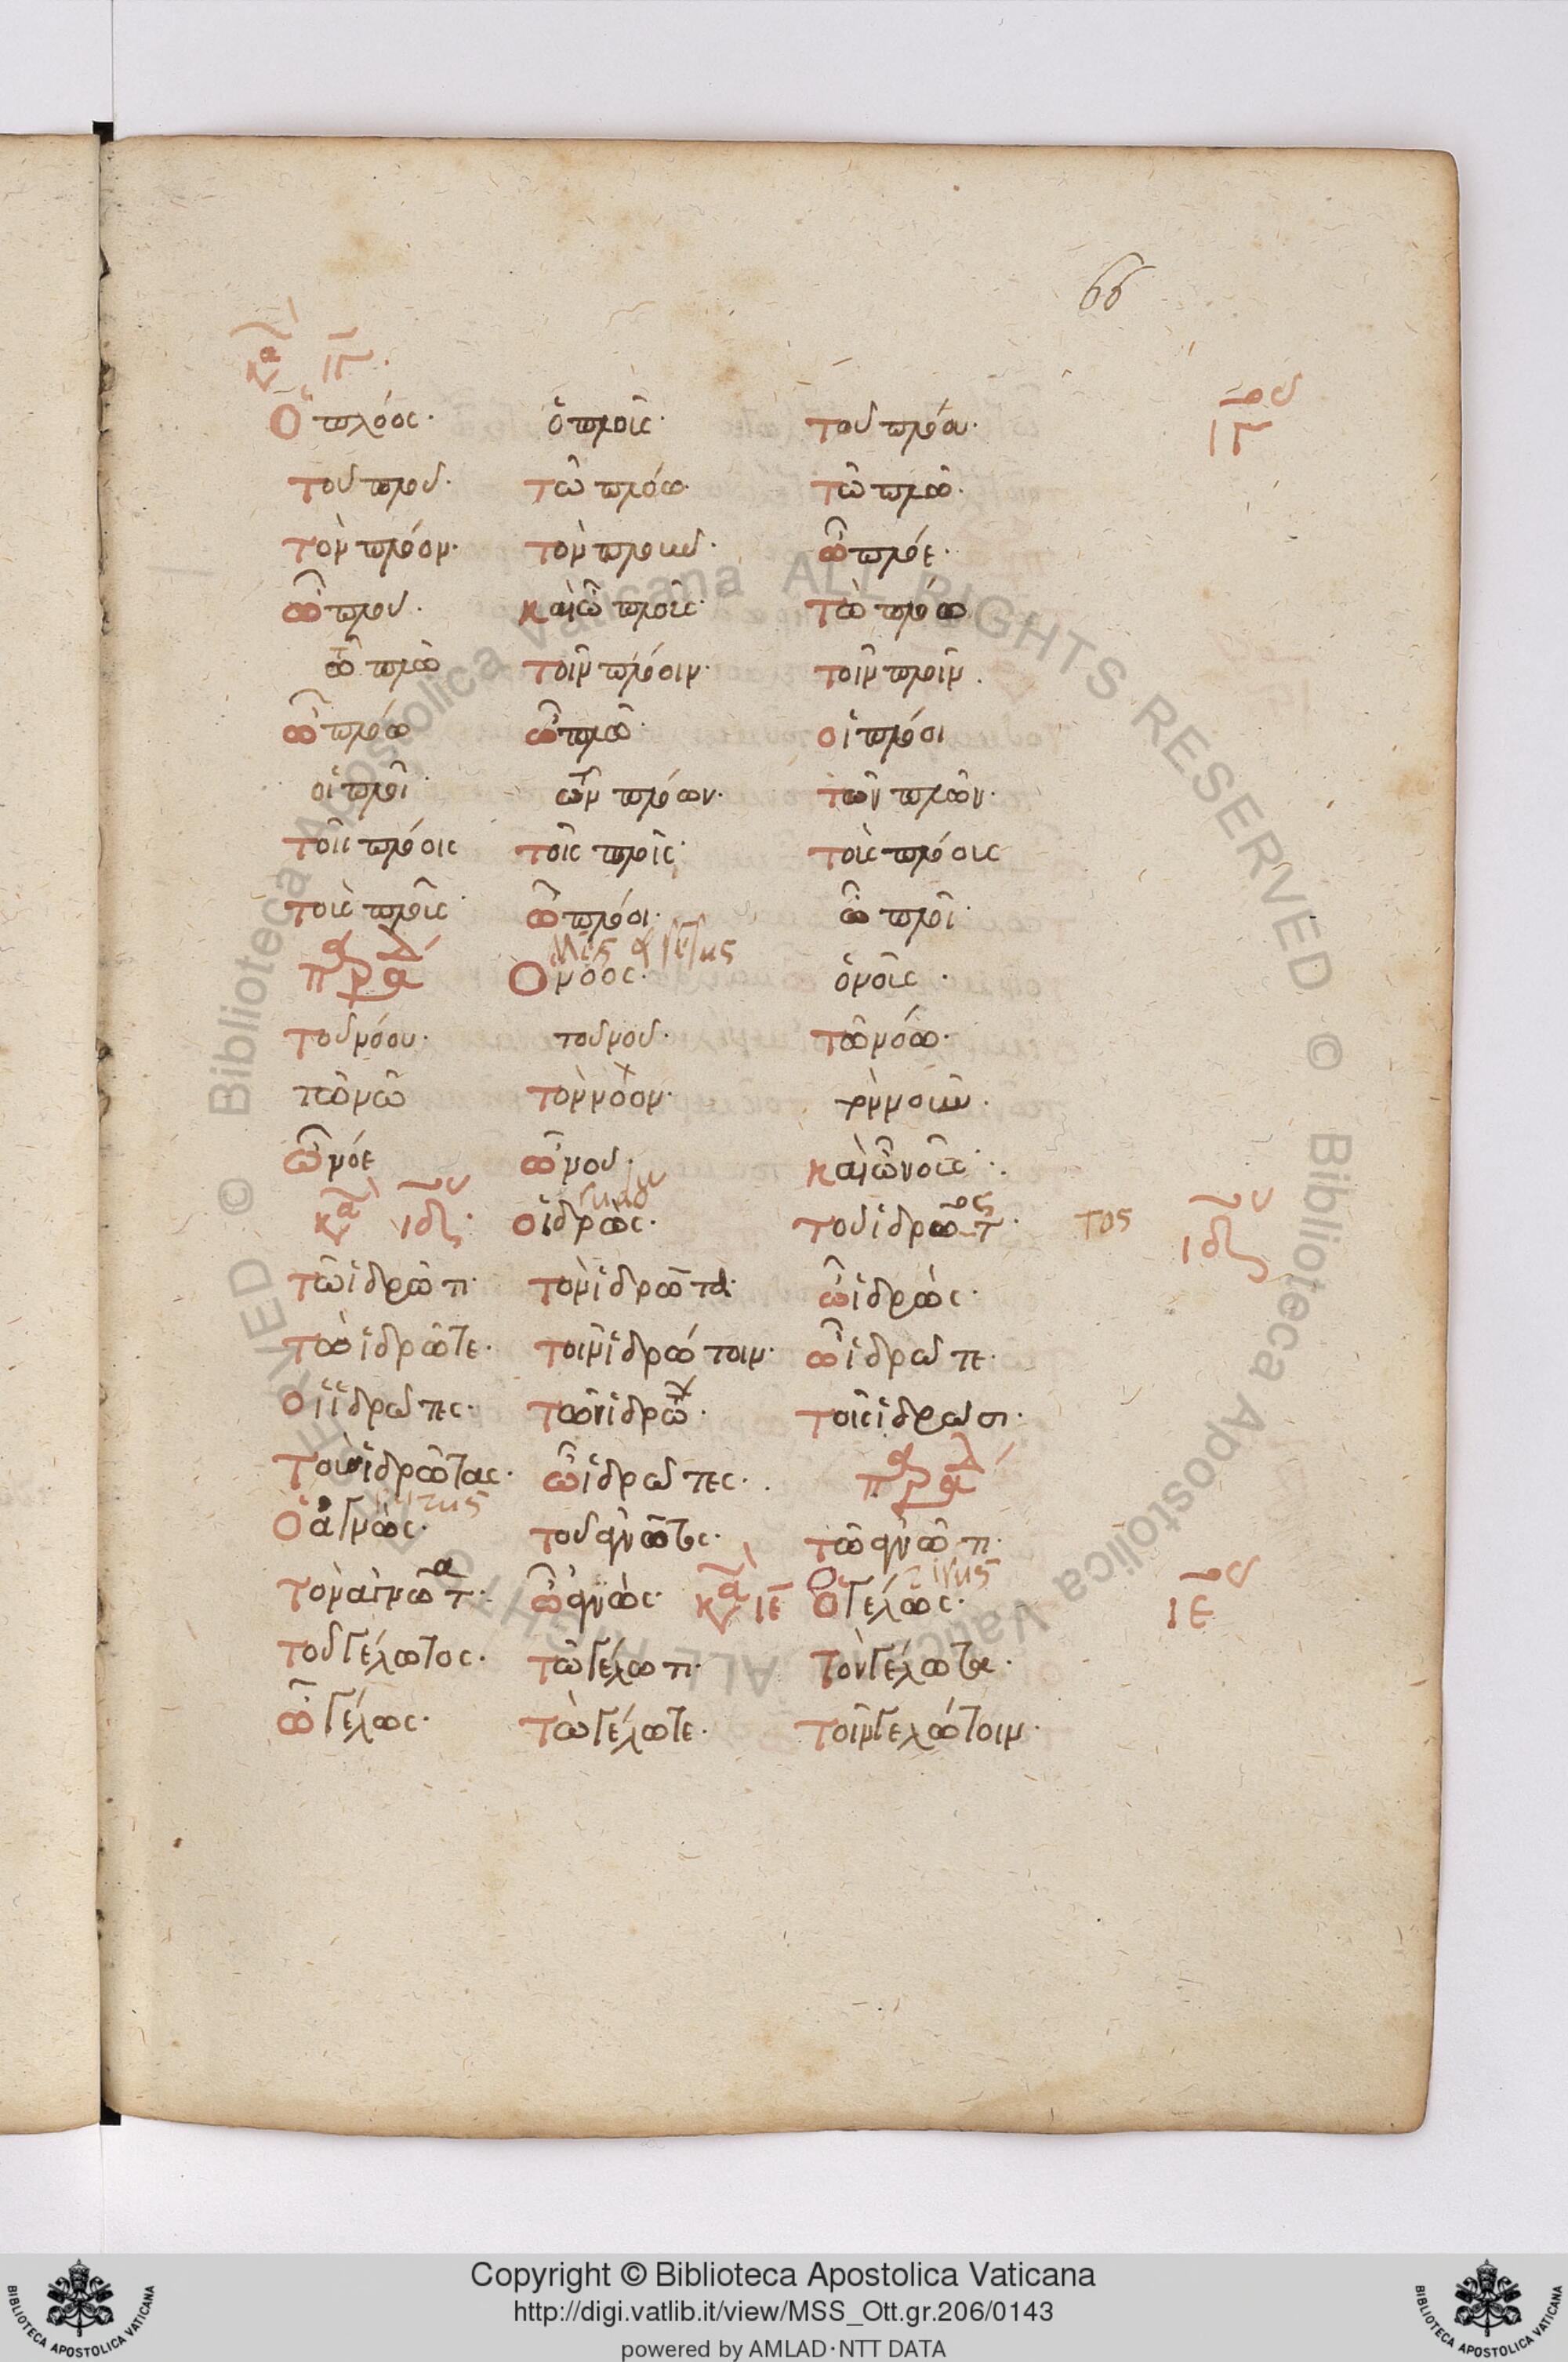 66
κα ιγ.
Ὁ πλόος. ὁ πλοῖς. τοῦ πλόου. ιγου
τοῦ πλοῦ. τῶ πλόω. τῶ πλῶ.
τὸν πλόον. τὸν πλοῦν. ὦ πλόε.
ὦ πλοῦ. καὶ ὦ πλοῖς. τὼ πλόω
τὼ πλῶ τοῖν πλόοιν. τοῖν πλοῖν.
ὦ πλόω ὦ πλῶ. οἱ πλόοι
οἱ πλοῖ. τῶν πλόων. τῶν πλῶν.
τοῖς πλόοις τοῖς πλοῖς. τοὺς πλόους
τοὺς πλοῦς. ὦ πλόοι. ὦ πλοῖ.
Ὁ νόος. ὁ νοῖς.
τοῦ νόου. τοῦ νοῦ. τῶ νόω.
τῶ νῶ τὸν νόον. τὸν νοῦν.
ὦ νόε ὦ νοῦ. καὶ ὦ νοῖς.
κα ιδου. ὁ ἱδρὼς. τοῦ ἱδρῶτος. τος ιδου
τῶ ἱδρῶτι. τὸν ἱδρῶτα. ὦ ἱδρὼς.
τὼ ἱδρῶτε. τοῖν ἱδρώτοιν. ὦ ἱδρῶτε.
οἱ ἱδρῶτες. τῶν ἱδρώτων. τοῖς ἱδρῶσι.
τοὺς ἱδρῶτας. ὦ ἱδρῶτες.
Ὁ ἀγνὼς. τοῦ ἀγνῶτος. τῶ ἀγνῶτι.
τὸν ἀγνῶτα. ὦ ἀγνὼς. κα ιε ὁ γέλως. ιεου
τοῦ γέλωτος. τῶ γέλωτι. τὸν γέλωτα.
ὦ γέλως. τὼ γέλωτε. τοῖν γελώτοιν.
Copyright © Biblioteca Apostolica Vaticana
http://digi.vatlib.it/view/MSS_Ott.gr.206/0143
powered by AMLAD·NTT DATA